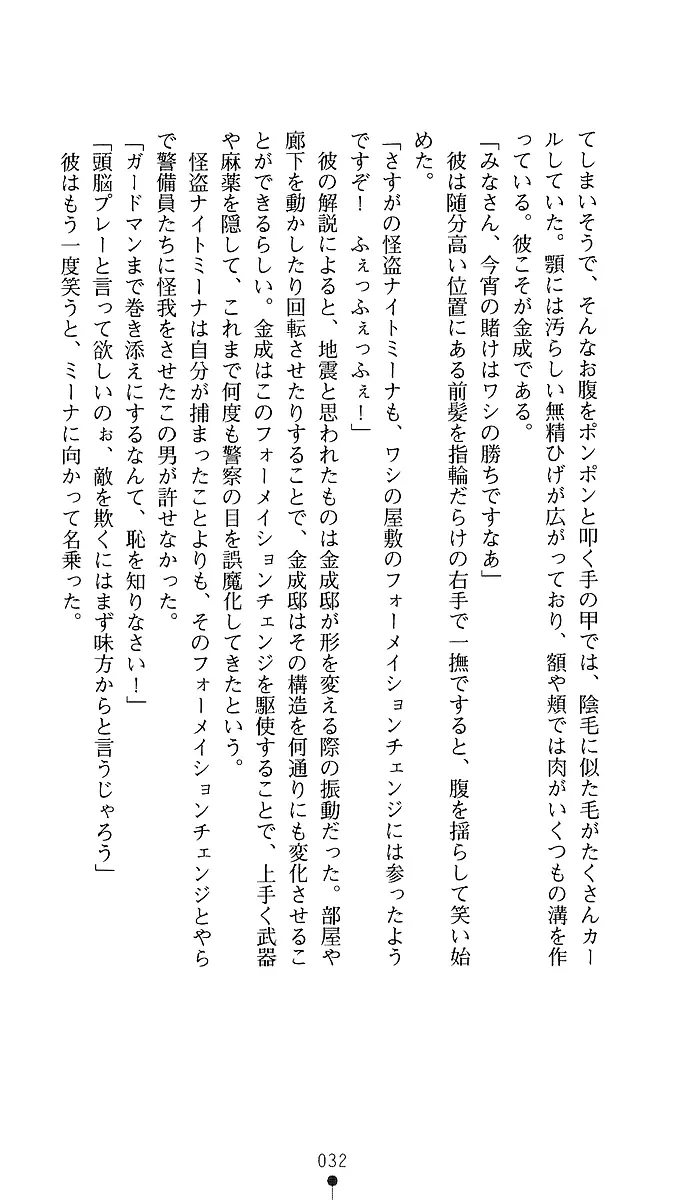 てしまいそうで、そんなお腹をポンポンと叩く手の甲では、陰毛に似た毛がたくさんカー
ルしていた。顎には汚らしい無精ひげが広がっており、額や頬では肉がいくつもの溝を作
っている。彼こそが金成である。
「みなさん、今宵の賭けはワシの勝ちですなあ」
彼は随分高い位置にある前髪を指輪だらけの右手で一撫ですると、腹を揺らして笑い始
めた。
「さすがの怪盗ナイトミーナも、ワシの屋敷のフォーメイションチェンジには参ったよう
ですぞ！　ふぇっふぇっふぇ！」
彼の解説によると、地震と思われたものは金成邸が形を変える際の振動だった。部屋や
廊下を動かしたり回転させたりすることで、金成邸はその構造を何通りにも変化させるこ
とができるらしい。金成はこのフォーメイションチェンジを駆使することで、上手く武器
や麻薬を隠して、これまで何度も警察の目を誤魔化してきたという。
怪盗ナイトミーナは自分が捕まったことよりも、そのフォーメイションチェンジとやら
で警備員たちに怪我をさせたこの男が許せなかった。
「ガードマンまで巻き添えにするなんて、恥を知りなさい！」
「頭脳プレーと言って欲しいのぉ、敵を欺くにはまず味方からと言うじゃろう」
彼はもう一度笑うと、ミーナに向かって名乗った。
032